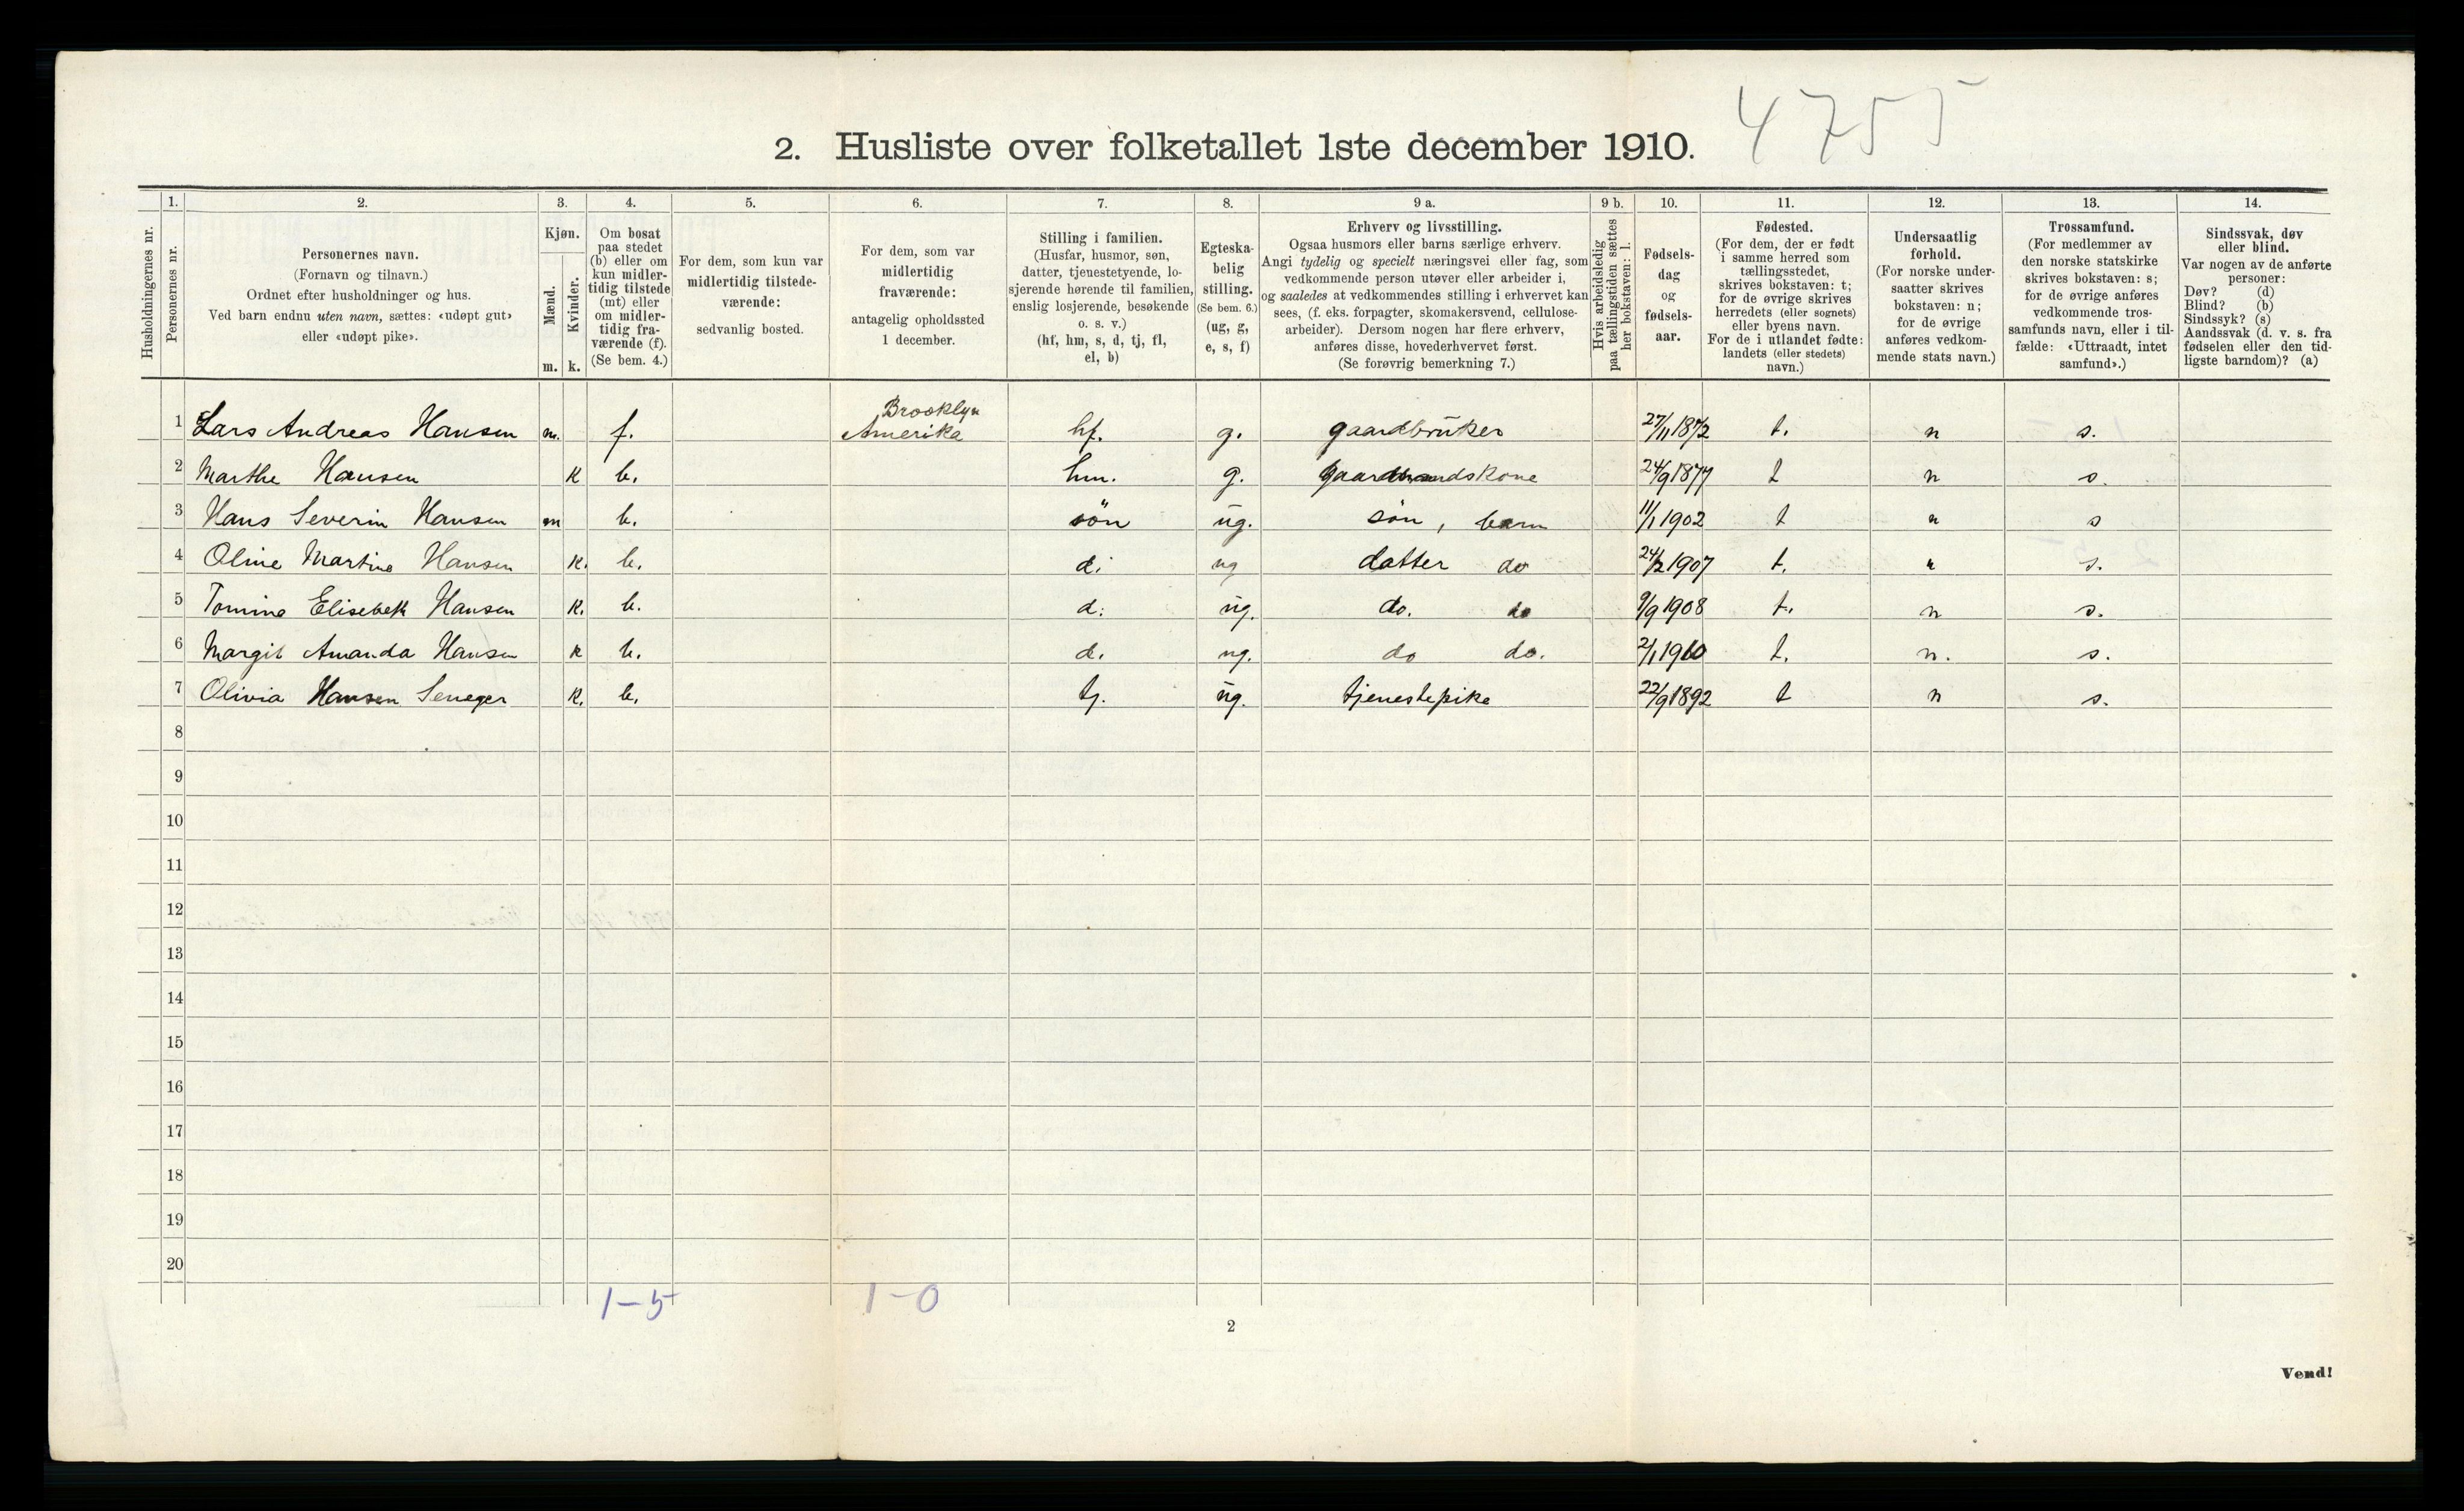 4755
2. Husliste over folketallet 1ste december 1910.
Husholdningernes nr.
1.
Personernes nr.
2.
Personernes navn.
(Fornavn og tilnavn.)
Ordnet efter husholdninger og hus.
Ved barn endnu uten navn, sættes: «udøpt gut»
eller «udøpt pike».
3.
Kjøn.
Mænd.
Kvinder.
m. k.
4.
Om bosat
paa stedet
(b) eller om
kun midler-
tidig tilstede
(mt) eller
om midler-
tidig fra-
værende (f).
(Se bem. 4.)
5.
For dem, som kun var
midlertidig tilstede-
værende:
sedvanlig bosted.
6.
For dem, som var
midlertidig
fraværende:
antagelig opholdssted
1 december.
7.
Stilling i familien.
(Husfar, husmor, søn,
datter, tjenestetyende, lo-
sjerende hørende til familien,
enslig losjerende, besøkende
o. s. v.)
(hf, hm, s, d, tj, fl,
el, b)
8.
Egteska-
belig
stilling.
(Se bem. 6.)
(ug, g,
e, s, f)
9 a.
Erhverv og livsstilling.
Ogsaa husmors eller barns særlige erhverv.
Angi tydelig og specielt næringsvei eller fag, som
vedkommende person utøver eller arbeider i,
og saaledes at vedkommendes stilling i erhvervet kan
sees, (f. eks. forpagter, skomakersvend, cellulose-
arbeider). Dersom nogen har flere erhverv,
anføres disse, hovederhvervet først.
(Se forøvrig bemerkning 7.)
9 b.
Hvis arbeidsledig
paa tællingstiden sættes
her bokstaven: l.
10.
Fødsels-
dag
og
fødsels-
aar.
11.
Fødested.
(For dem, der er født
i samme herred som
tællingsstedet,
skrives bokstaven: t;
for de øvrige skrives
herredets (eller sognets)
eller byens navn.
For de i utlandet fødte:
landets (eller stedets)
navn.)
12.
Undersaatlig
forhold.
(For norske under-
saatter skrives
bokstaven: n;
for de øvrige
anføres vedkom-
mende stats navn.)
13.
Trossamfund.
(For medlemmer av
den norske statskirke
skrives bokstaven: s;
for de øvrige anføres
vedkommende tros-
samfunds navn, eller i til-
fælde: «Uttraadt, intet
samfund».)
14.
Sindssvak, døv
eller blind.
Var nogen av de anførte
personer:
Døv? (d)
Blind? (b)
Sindssyk? (s)
Aandssvak (d. v. s. fra
fødselen eller den tid-
ligste barndom)? (a)
Brooklyn
1 Lars Andreas Hansen m. f. Amerika hf. g. gaardbruker 27/11 1872 t. n s.
2 Marthe Hansen k b. hm. g. gaardmandskone 24/9 1877 t n s.
3 Hans Severin Hansen m b. søn ug. søn, barn 11/1 1902 t n s
4 Oline Martine Hansen k. b. d. ug datter do 24/2 1907 t. n s.
5 Tomine Elisebeth Hansen k. b. d. ug. do. do 9/9 1908 t. n s.
6 Margit Amanda Hansen k b. d. ug. do do. 2/1 1910 t. n. s.
7 Olivia Hansen k. b. tj. ug. tjenestepike 22/9 1892 t n s.
8
9
10
11
12
13
14
15
16
17
18
19
20
1-5 1-0
2
Vend!